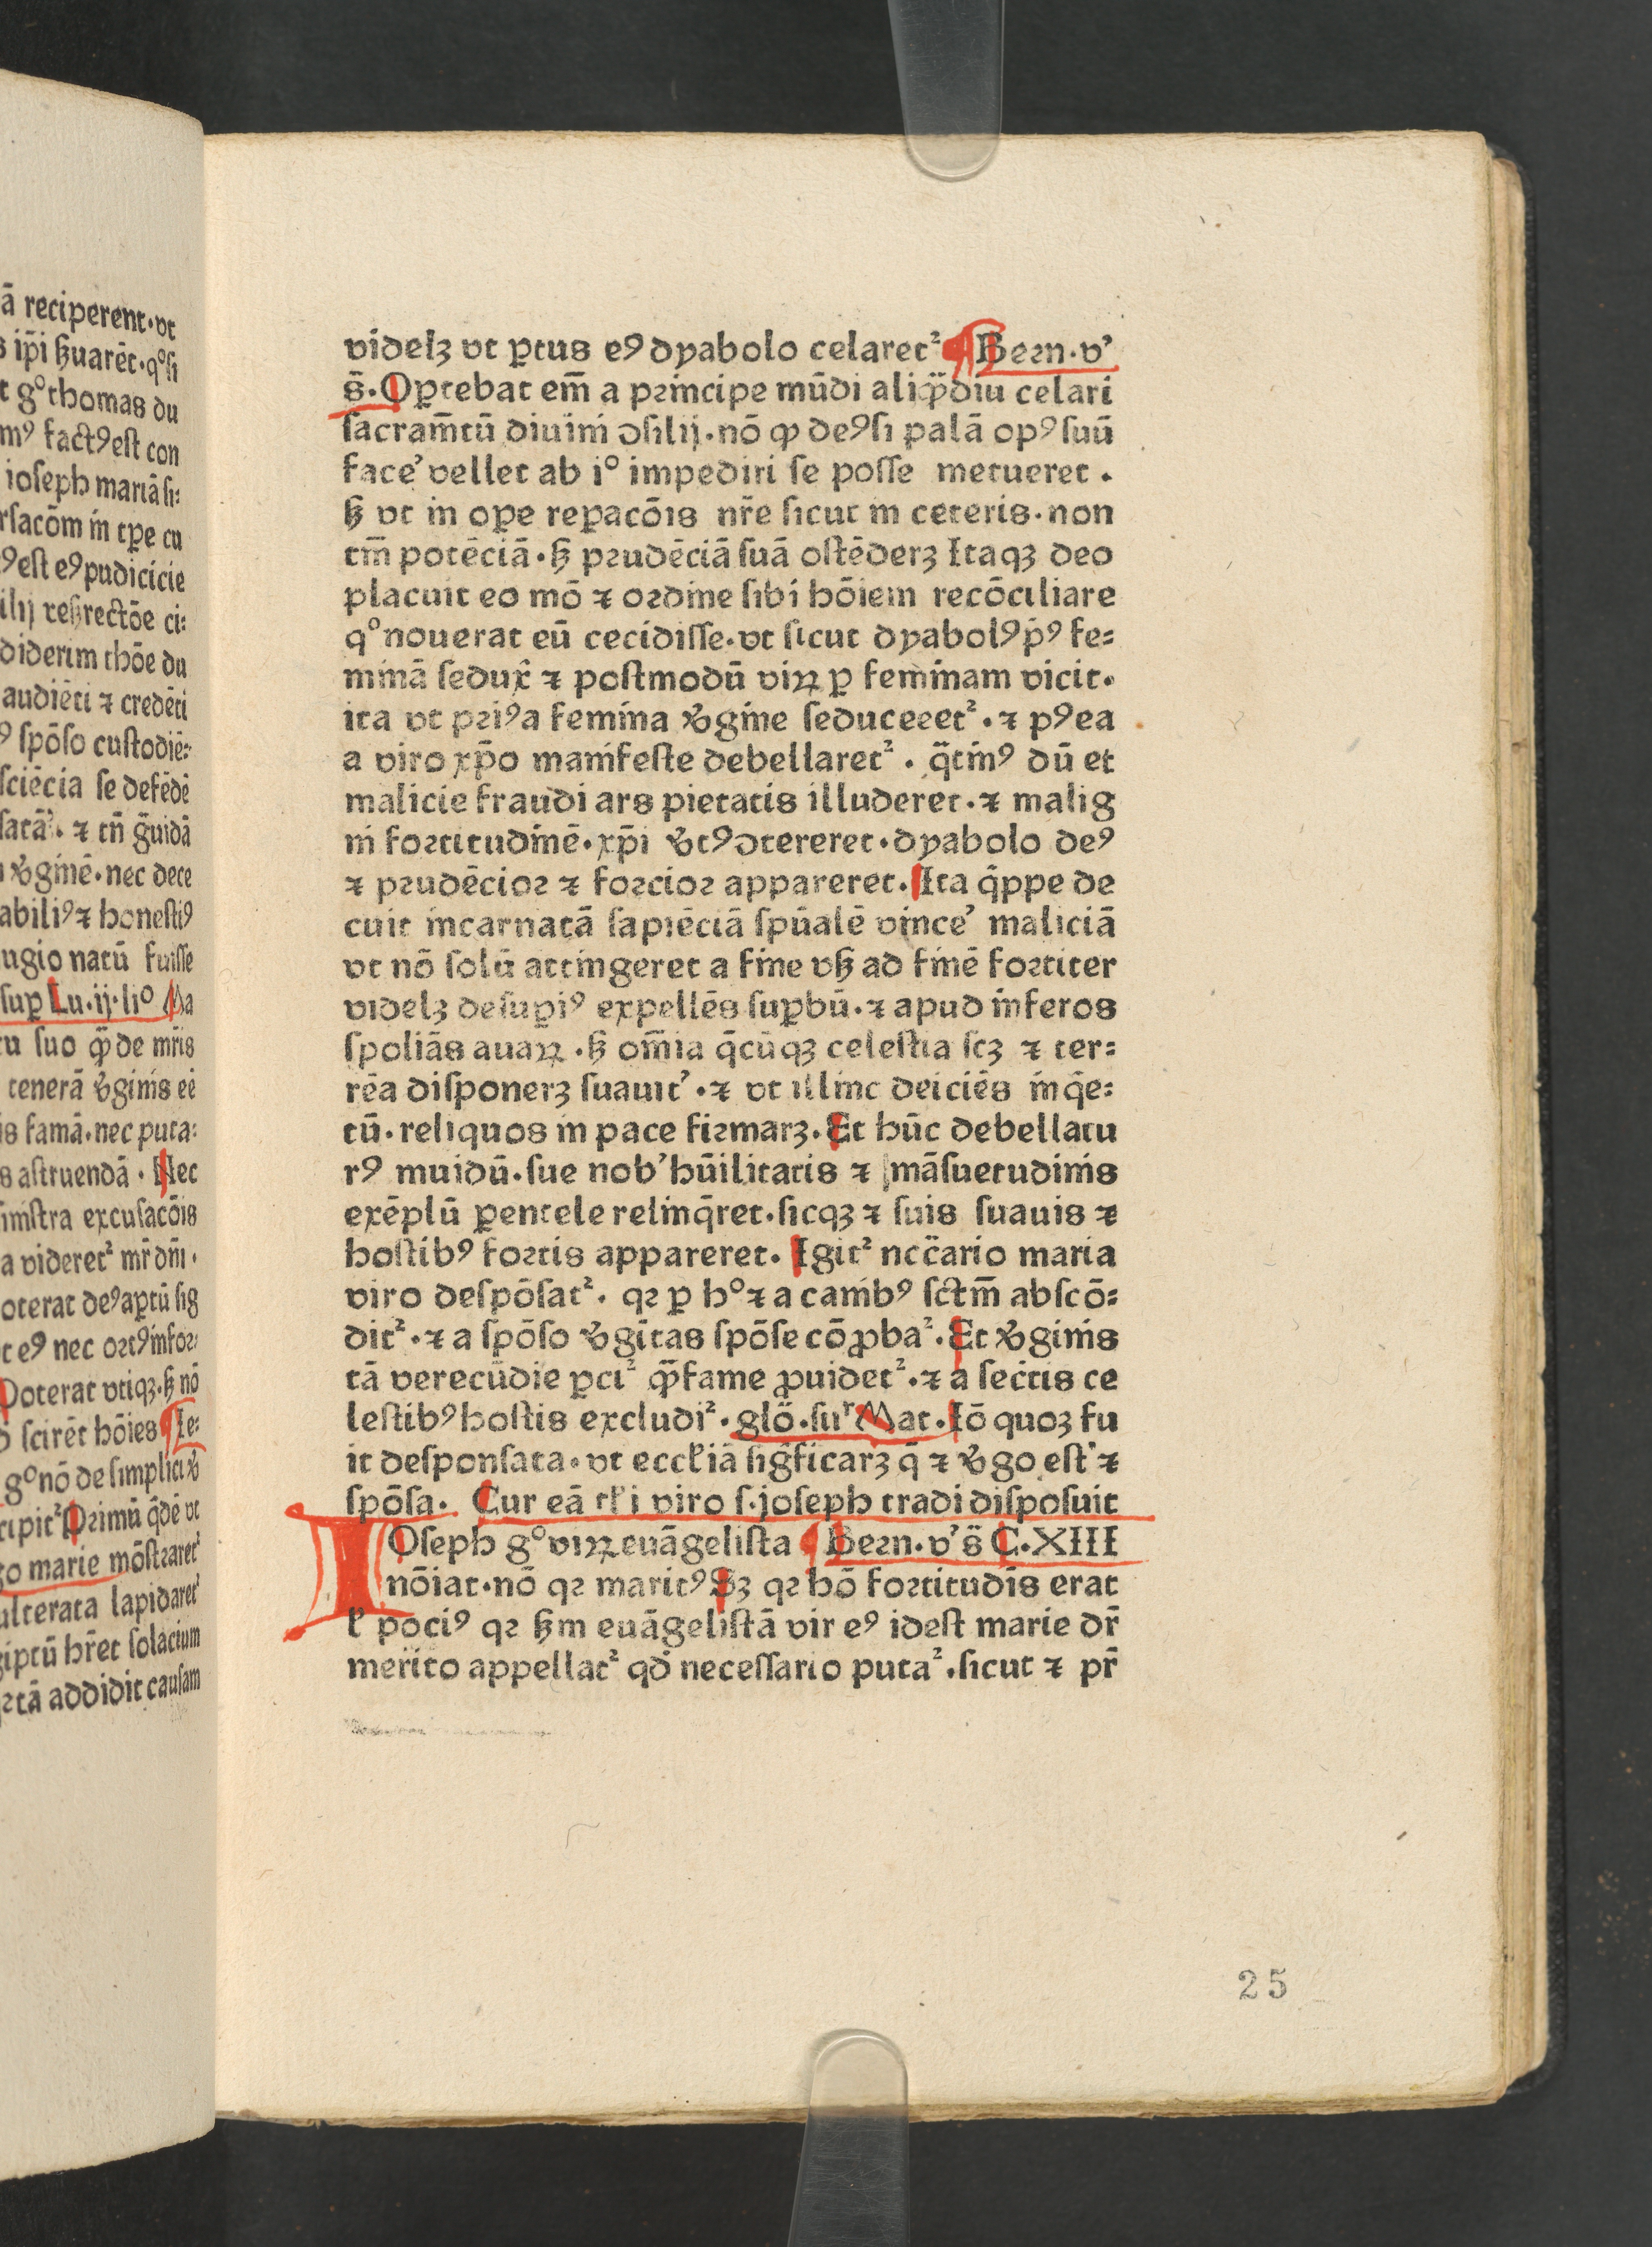 ā reciperent·vt
s ip̄i ẜuarēt·qͦſi
t gͦ thomas du
mꝰ factꝰ eſt con
ioſeph mariā ſi⸗
rſacōm in tp̄e cu
ꝰeſt eꝰ pudicicie
diderim thōe du
audiēti ⁊ credēti
ꝰ ſpōſo custodiē⸗
ſciēcia ſe defēdē
nec dece
abiliꝰ ⁊ honeſtiꝰ
ugio natū fuiſſe
ſuꝑ Lu·ij·liͦ Ma
tu ſuo ꝙ̄ de mr̄is
is famā·nec puta⸗
s aſtruendā · Nec
niſtra excuſacōis
a videretᷣ mr̄ dn̄i ·
oterat deꝰ aꝑtū ſig
t eꝰ nec ortꝰ infor⸗
Poterat vtiqꝫ·ẜ nō
ſcirēt hōies ¶ Ie⸗
gͦ nō de ſimplici
cipitᷣ Primū q̄dē vt
go marie mōſtraretᷣ
ulterata lapidaretᷣ
giptū hr̄et ſolacium
addidit cauſam
videlꝫ vt ꝑtus eꝰ dyabolo celaretᷣ ¶ Bern·v’
s̄·Oꝑtebat em̄ a principe mūdi aliqͣ̄diu celari
ſacram̄tū diuini ꝯſilij·nō ꝙ deꝰ ſi palā opꝰ ſuū
face’ vellet ab iͦ impediri ſe poſſe metueret .
ẜ vt in oꝑe reꝑacōis nr̄e ſicut in ceteris·non
tm̄ potēciā·ẜ prudēciā ſuā oſtēderꝫ Itaqꝫ deo
placuit eo mō ⁊ ordine ſibi hōiem recōciliare
qͦ nouerat eū cecidiſſe·vt ſicut dyabolꝰ p̄ꝰ fe⸗
minā ſedux̄ ⁊ poſtmodū viꝝ ꝑ feminam vicit·
ita vt priꝰ a femina v̓gine ſeduceeetᷣ · ⁊ pꝰ ea
a viro xp̄o manifeſte debellaretᷣ . q̄tinꝰ dū et
malicie fraudi ars pietatis illuderet·⁊ malig
ni fortitudinē·xp̄i v̓tꝰ ꝯtereret·dyabolo deꝰ
⁊ prudēcior ⁊ forcior appareret·Ita q̄ppe de
cuit incarnatā ſapiēciā ſpūalē vince’ maliciā
vt nō ſolū attingeret a fine vẜ ad finē fortiter
videlꝫ deſuꝑiꝰ expellēs ſuꝑbū·⁊ apud inferos
ſpoliās auaꝝ ·ẜ om̄ia q̄cūqꝫ celeſtia ſcꝫ ⁊ ter⸗
rēa diſponerꝫ ſuauit’ ·⁊ vt illinc deiciēs inq̄e⸗
tū·reliquos in pace firmarꝫ·Et hūc debellatu
rꝰ muidū·ſue nob’ hūilitatis ⁊ māſuetudinis
exēplū ꝑentele relinq̄ret·ſicqꝫ ⁊ ſuis ſuauis ⁊
hoſtibꝰ fortis appareret. Igitᷣ ncc̄ario maria
viro deſpōſatᷣ. qr ꝑ hͦ ⁊ a canibꝰ ſctm̄ abſcō⸗
ditᷣ·⁊ a ſpōſo v̓gītas ſpōſe cōꝓbaᷣ·Et v̓ginis
tā verecūdie ꝑciᷣ ꝙ̄ fame ꝓuidetᷣ·⁊ a ſectis ce
leſtibꝰ hoſtis excludiᷣ·glō·ſuʳ Mat·Iō quoꝫ fu
it deſponſata·vt eccl̓iā ſigficarꝫ q̄ ⁊ v̓go eſt ⁊
ſpōſa. Cur eā tl̓i viro ſ·joſeph tradi diſpoſuit
IOſeph gͦ viꝝ euāgeliſta ¶ Bern·v’ s̄ C·XIII
nōiat·nō qr maritꝰ Sꝫ qr hō fortitudīs erat
l̓ pociꝰ qr ẜm euāgeliſtā vir eꝰ ideſt marie dr̄
merito appellatᷣ qd̓ neceſſario putaᷣ·ſicut ⁊ pr̄
25